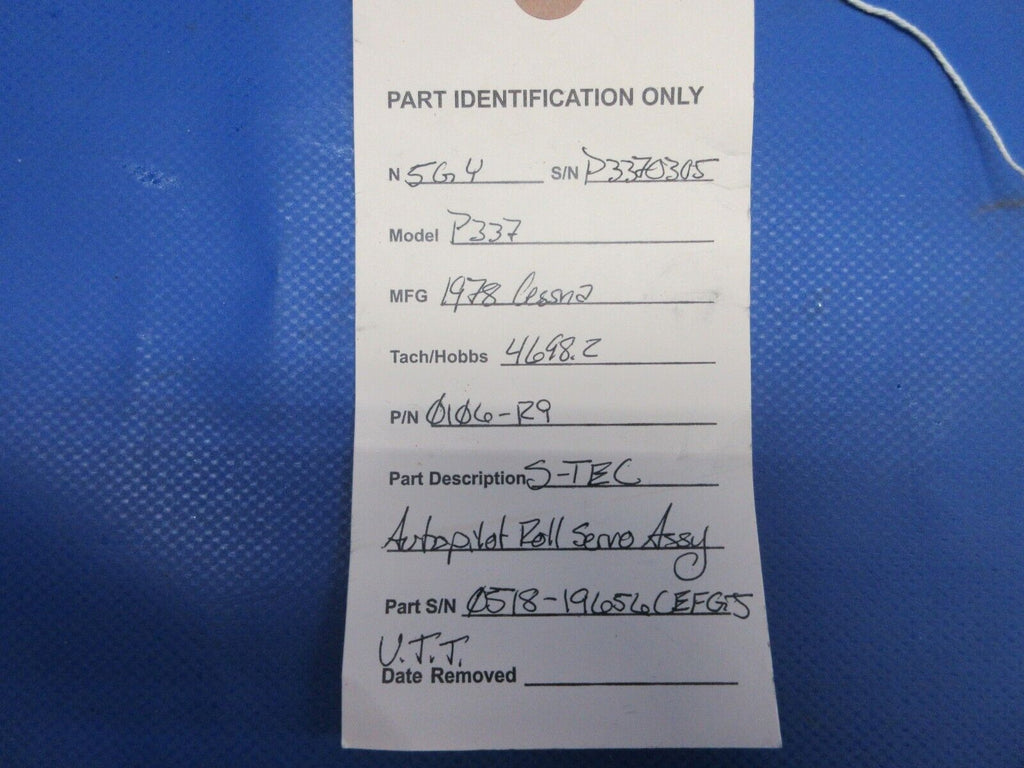 PART IDENTIFICATION ONLY
N 5G4 S/N P3370305
Model P337
MFG 1978 Cessna
Tach/Hobbs 4698.2
P/N 0106-R9
Part Description S-TEC
Autopilot Roll Servo Assy
Part S/N 0518-19656CEFG5
U.T.T.
Date Removed